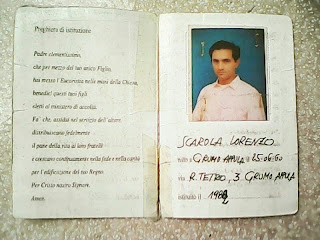 Preghiera di istituzione
Padre clementissimo,
che per mezzo del tuo unico Figlio,
hai messo l'Eucaristia nelle mani della Chiesa,
benedici questi tuoi figli
eletti al ministero di accoliti.
Fa' che, assidui nel servizio dell'altare
distribuiscano fedelmente
il pane della vita ai loro fratelli
e crescano continuamente nella fede e nella carità
per l'edificazione del tuo Regno.
Per Cristo nostro Signore.
Amen.
SCAROLA LORENZO
nato a GRUMO APPULA il 25-06-60
via R. TETRO, 3 GRUMO APPULA
istituito il